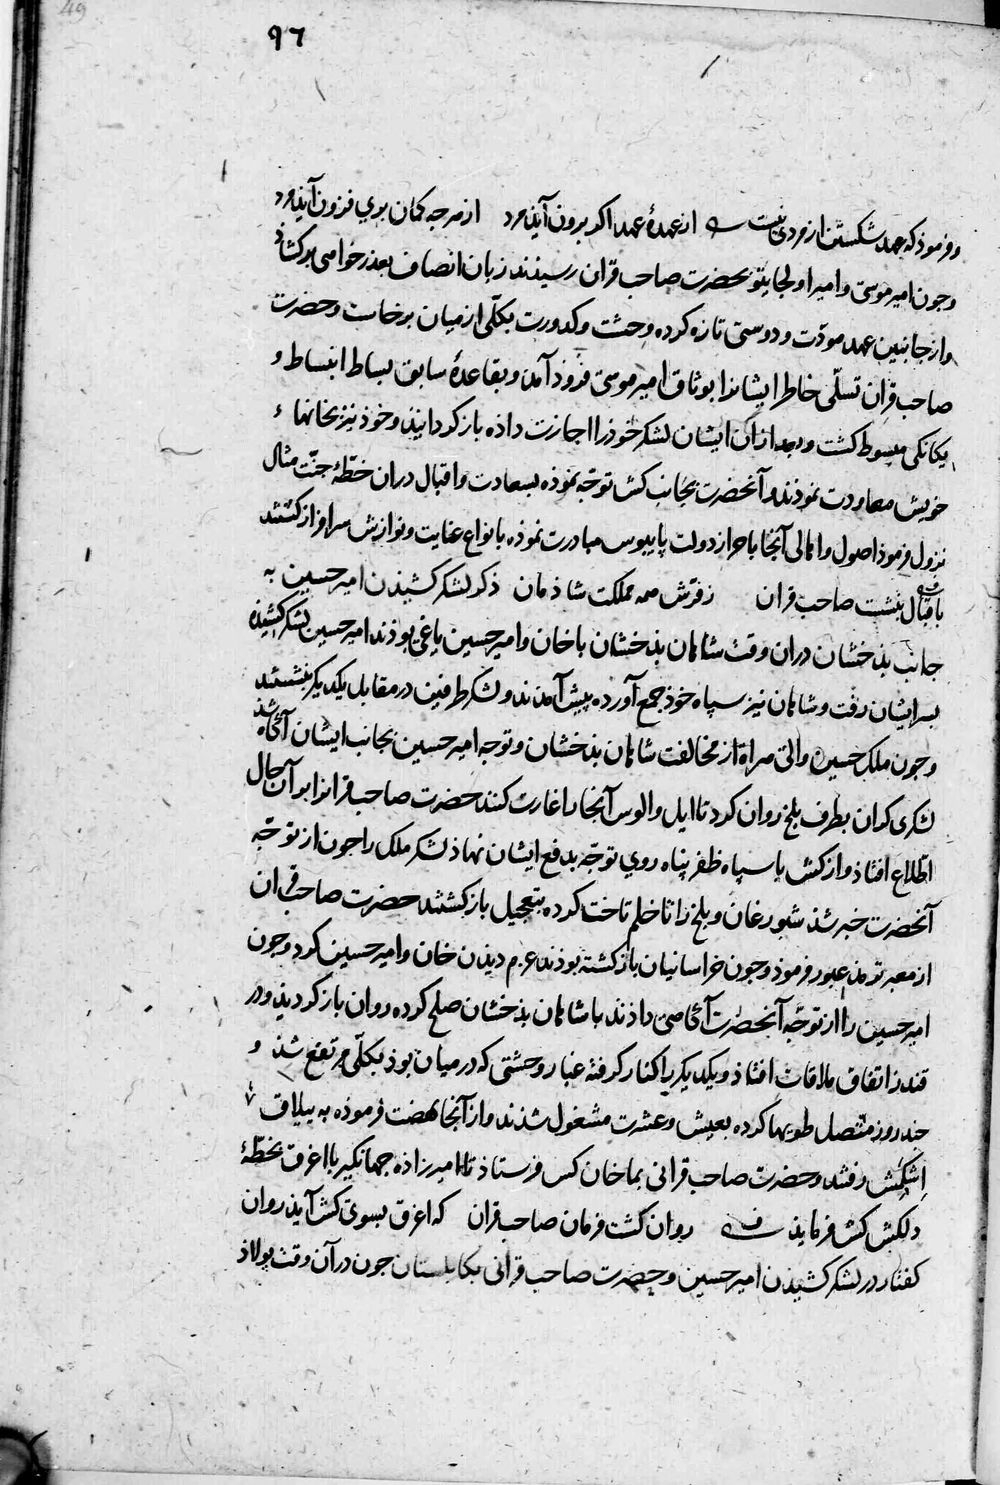 49
٩٦
و فرموذ که عهد شکستن از مردی نیست از عهدهٔ عهد اکر برون آیذ مرد از هرجه کمان بری فزون آیذ مرد
وجون امیر موسی و امیر اولجایتو بحضرت صاحب قران رسیذند زبان انصاف بعذرخواهی برکشاذ
و از جانبین عهد مودّت و دوستی تازه کرده وحشت و کدورت بکلّی از میان برخاست و حضرت
صاحب قران تسلّی خاطر ایشانرا بوثاق امیر موسی فروذ آمذ و بقاعدهٔ سابق بساط انبساط و
یکانکی مبسوط کشت و بعد از ان ایشان لشکر خوذرا اجازت داذه باز کردانیذند و خوذ نیز بخانهاء
خویش معاودت نموذند و آنحضرت بجانب کش توجّه نموذه بسعادت و اقبال دران خطّهٔ جنّت مثال
نزول فرموذ اصول و اهالی آنجا باحراز دولت پایبوس مبادرت نموذه بانواع عنایت و نوازش سرافراز کشتند
باقبال بنشست صاحب قران زفرّش همه مملکت شاذمان ذکر لشکر کشیذن امیر حسین به
جانب بذخشان دران وقت شاهان بذخشان با خان و امیر حسین یاغی بوذند امیر حسین لشکر کشیذه
بسر ایشان رفت و شاهان نیز سپاه خوذ جمع آورده پیش آمذند و لشکر طرفین در مقابل یکدیکر بنشستند
وجون ملک حسین والی هراة از مخالفت شاهان بذخشان و توجه امیر حسین بجانب ایشان آکاه شذ
لشکری کران بطرف بلخ روان کرد تا ایل و الوس آنجا را غارت کنند حضرت صاحب قرانرا بر آن حال
اطّلاع افتاذ و از کش با سپاه ظفر پناه روی توجّه بدفع ایشان نهاذ لشکر ملک را جون از توجّه
آنحضرت خبر شذ شبورغان و بلخ را تا خلم تاخت کرده بتعجیل باز کشتند حضرت صاحب قران
از معبر ترمذ عبور فرموذ وجون خراسانیان باز کشته بوذند عزم دیذن خان و امیر حسین کرد وجون
امیر حسین را از توجّه آنحضرت آکاهی داذند با شاهان بذخشان صلح کرده روان باز کردیذ و در
قندز اتفاق ملاقات افتاذ و یکدیکر را کنار کرفته غبار وحشتی که در میان بوذ بکلّی مرتفع شذ و
جند روز متّصل طویها کرده بعیش و عشرت مشغول شذند و از آنجا نهضت فرموذه به ییلاق
اشکمش رفتند و حضرت صاحب قرانی بماخان کس فرستاذ تا امیرزاذه جهانکیر با اغرق بخطّهٔ
دلکش کش فرمایذ روان کشت فرمان صاحب قران که اغرق بسوی کش آیذ روان
کفتار در لشکر کشیذن امیر حسین و حضرت صاحب قرانی بکابلستان جون در آن وقت بولاذ